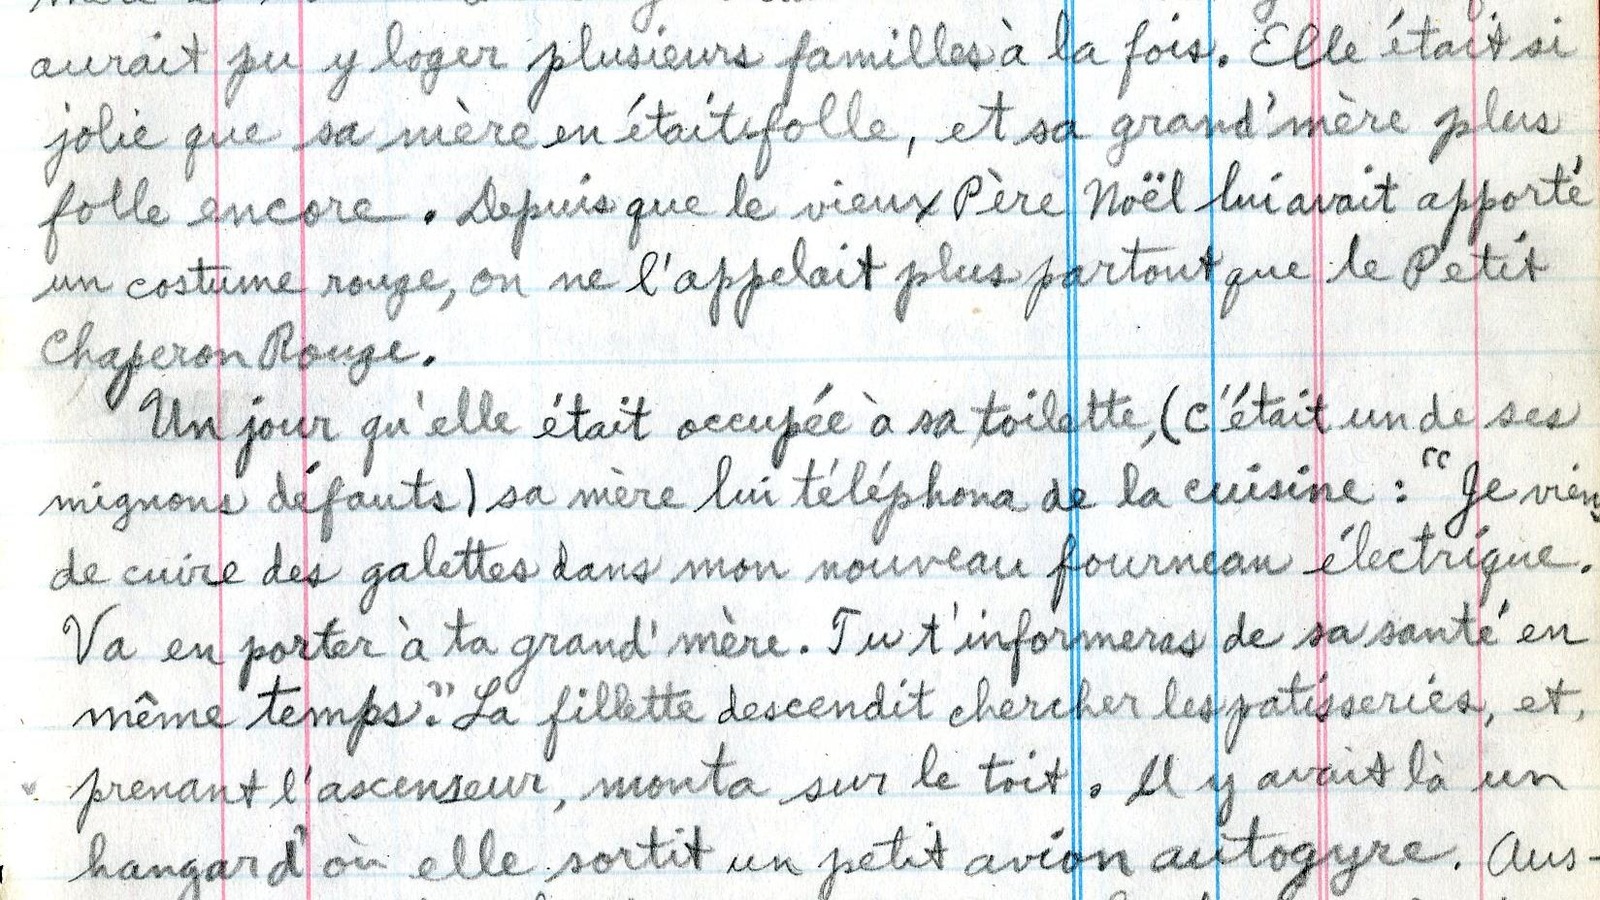 aurait pu y loger plusieurs familles à la fois. Elle était si
jolie que sa mère en était folle, et sa grand'mère plus
folle encore. Depuis que le vieux Père Noël lui avait apporté
un costume rouge, on ne l'appelait plus partout que le Petit
Chaperon Rouge.
Un jour qu'elle était occupée à sa toilette, (c'était un de ses
mignons défauts) sa mère lui téléphona de la cuisine : "Je viens
de cuire des galettes dans mon nouveau fourneau électrique.
Va en porter à ta grand'mère. Tu t'informeras de sa santé en
même temps." La fillette descendit chercher les patisseries, et,
prenant l'ascenseur, monta sur le toit. Il y avait là un
hangar d'où elle sortit un petit avion autogyre. Aus-